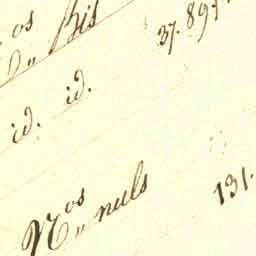 os
D„ Bis 37. 89.
id. id.
Nos „ nuls 131.